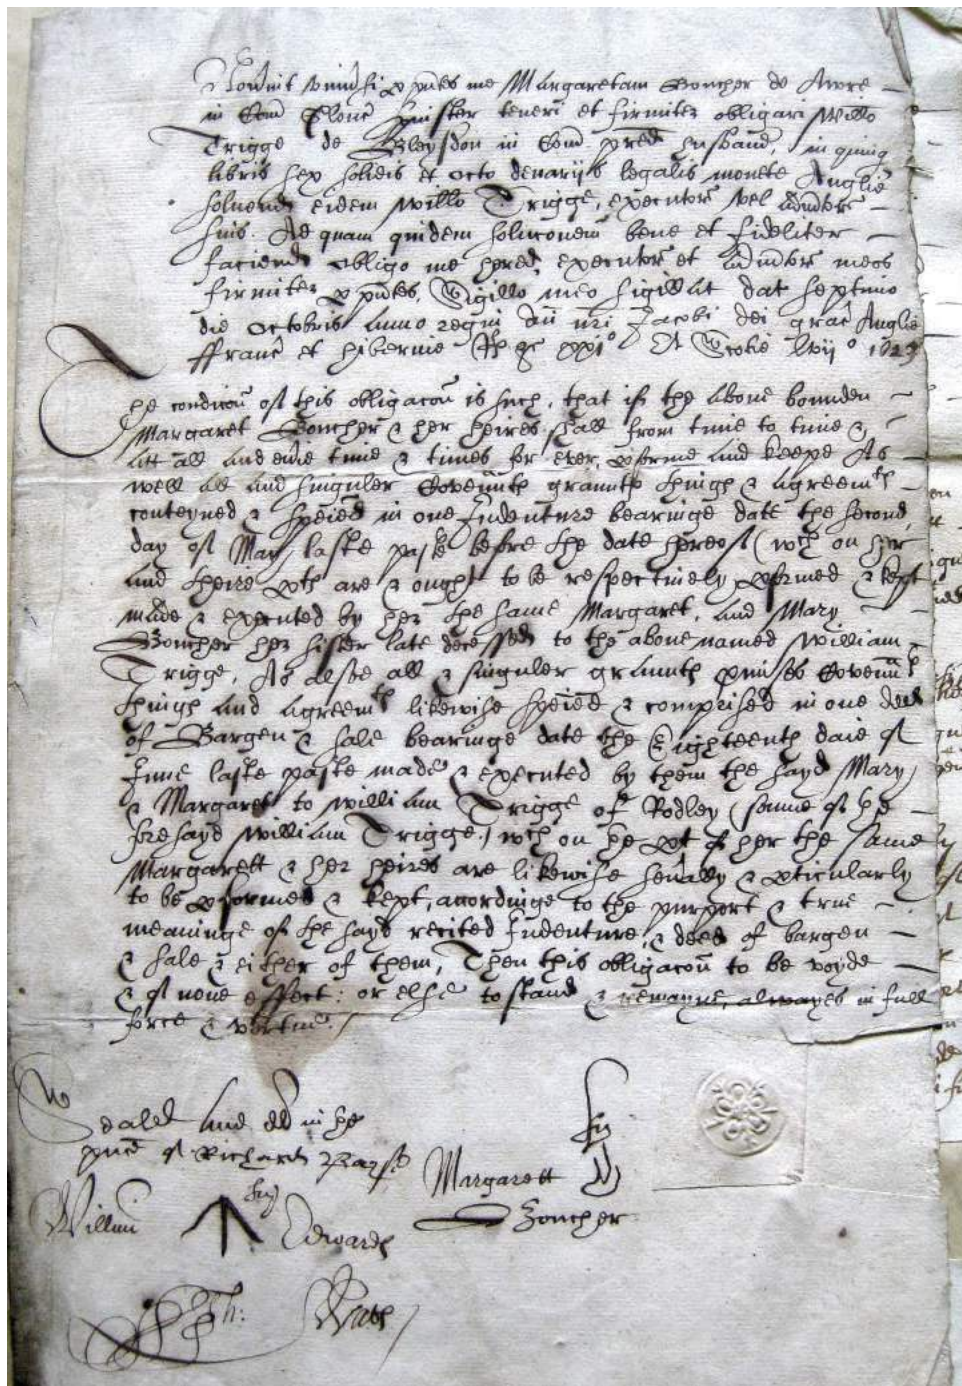 Noverint univsi p pntes me Margaretam Boucher de Awre
in Com Glouc spinster teneri et firmiter obligari Willo
Trigge de Bleysdon in Com pred husband, in quinq
libris sex solidis et octo denariis legalis monete Anglie
solvend eidem Willo Trigge, executor vel Admtor
suis. Ad quam quidem soluconem bene et fideliter
faciend obligo me hered, executor et Admtor meos
firmiter p pntes, Sigillo meo sigillat dat septimo
die Octobris Anno regni dni nri Jacobi dei grac Anglie
ffranc et Hibernie &c xxj° Et Scotie lvij° 1623
The condicon of this obligacon is such, that if the above bounden
Margaret Boucher & her heires shall from time to time &
att all and evie time & times for ever, pforme and keepe As
well all and singuler Covennts graunts things & agreemts
conteyned & specied in one Indenture bearinge date the second
day of May laste paste before the date hereof (wch on her
and theire pts are & ought to be respectively pformed & kept
made & executed by her the same Margaret, and Mary
Boucher her sister late decessed to the above named William
Trigge, As alsoe all & singuler graunts pmises Covennts
things and agreemts likewise specied & comprised in one deed
of Bargen & sale bearinge date the Eighteenth daie of
June laste paste made & executed by them the sayd Mary
& Margaret to William Trigge of Rodley (sonne of the
foresayd William Trigge) wch on the pt of her the same
Margarett & her heires are likewise sevally & pticularly
to be pformed & kept, accordinge to the purport & true
meaninge of the sayd recited Indenture, & deed of bargen
& sale & either of them, Then this obligacon to be voyde
& of none effect: or else to stand & remayne, alwayes in full
force & vertue./
Sealed and dd in the
psnce of Richard
Margarett
Boucher
Willm Edwards